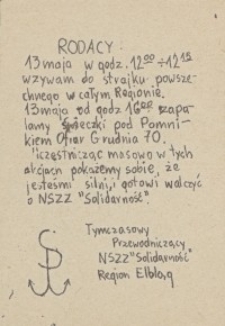 RODACY:
13 maja w godz. 12⁰⁰÷12¹⁵
wzywam do strajku powsze-
chnego w całym Regionie.
13 maja od godz 16⁰⁰ zapa-
lamy świeczki pod Pomni-
kiem Ofiar Grudnia 70.
Uczestnicząc masowo w tych
akcjach pokażemy sobie, że
jesteśmy silni, i gotowi walczyć
o NSZZ "Solidarność".
Tymczasowy
Przewodniczący
NSZZ "Solidarność"
Region Elbląg